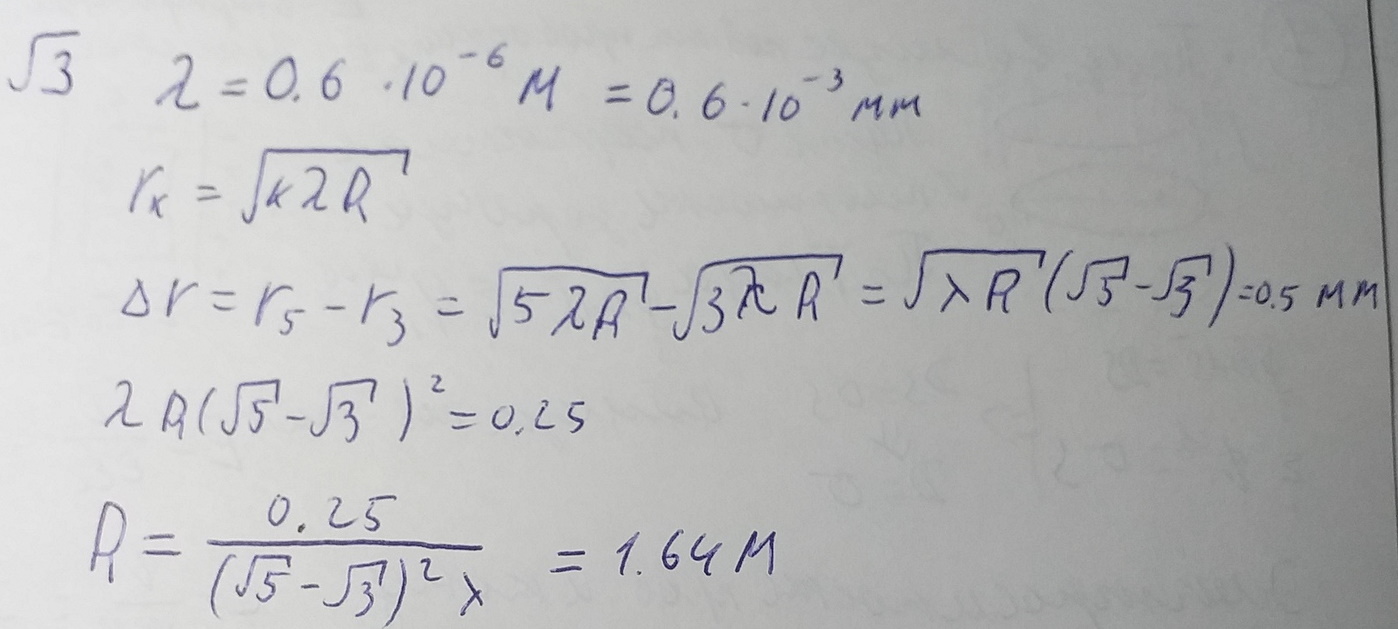 √3 λ = 0.6 · 10⁻⁶ м = 0.6 · 10⁻³ мм
rₖ = √(kλR)
Δr = r₅ - r₃ = √(5λR) - √(3λR) = √(λR) (√5 - √3) = 0.5 мм
λR(√5 - √3)² = 0.25
R = 0.25 / ((√5 - √3)² λ) = 1.64 м